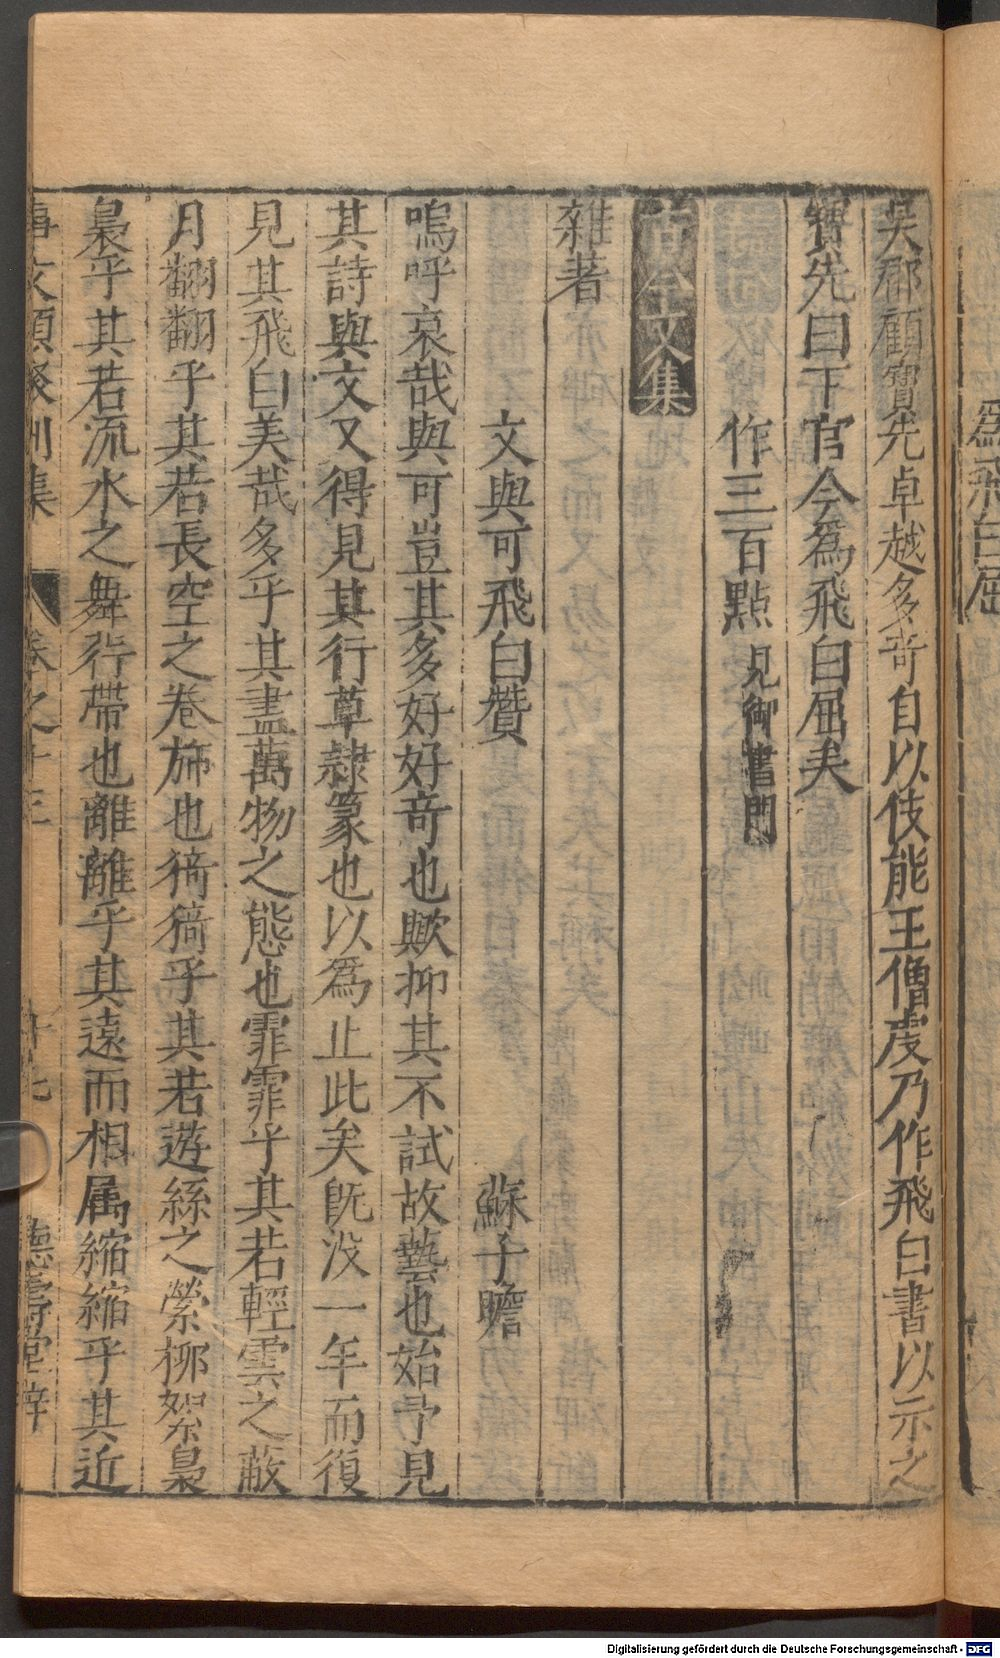 為飛白屈
吳郡顧寶先卓越多奇自以伎能王僧虔乃作飛白書以示之
寶先曰下官今為飛白屈矣
作三百點見御書門
古今文集
雜著
文與可飛白贊 蘇子瞻
嗚呼哀哉與可豈其多好好奇也歟抑其不試故藝也始予見
其詩與文又得見其行草隸篆也以為止此矣旣没一年而復
見其飛白美哉多乎其盡萬物之態也霏霏乎其若輕雲之蔽
月翻翻乎其若長空之卷斾也猗猗乎其若遊絲之縈柳絮裊
裊乎其若流水之舞荇帶也離離乎其遠而相属縮縮乎其近
事文類聚別集 卷之十三 德壽堂梓
Digitalisierung gefördert durch die Deutsche Forschungsgemeinschaft - DFG